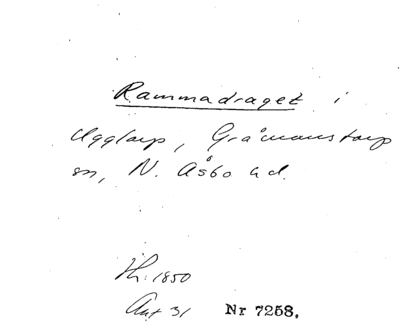 Rammadraget i
Ugglarp, Gråmanstorp
sn, N. Åsbo hd.
Th. 1850
Ant 31 Nr 7258.